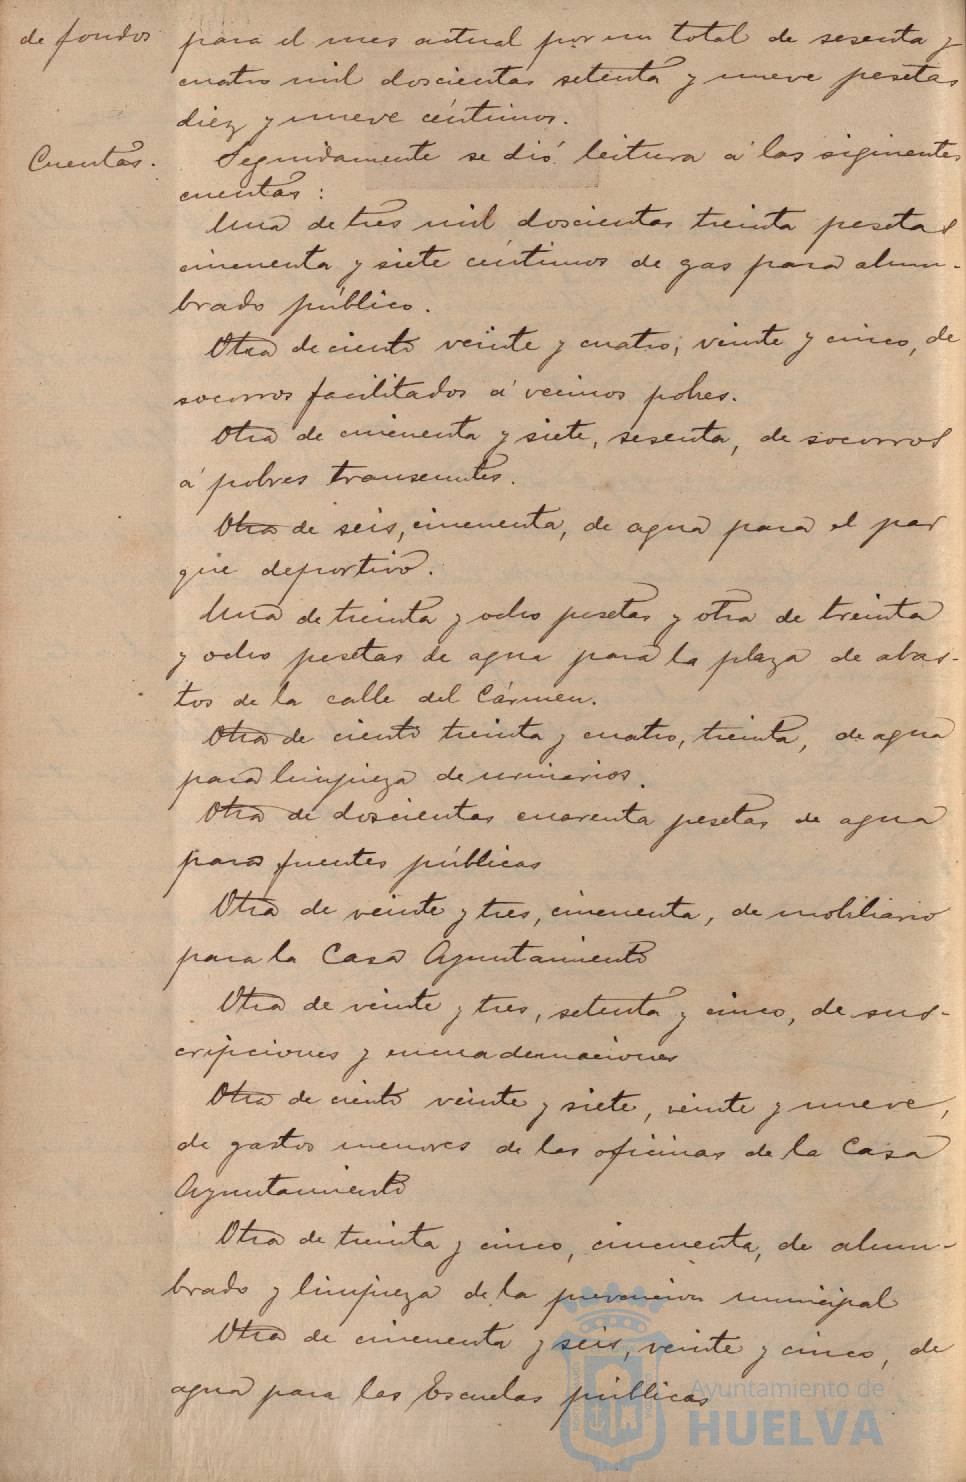 de fondos
para el mes actual por un total de sesenta y
cuatro mil doscientas setenta y nueve pesetas
diez y nueve céntimos.
Cuentas.
Seguidamente se dió leitura á las siguientes
cuentas:
Una de tres mil doscientas treinta pesetas
cincuenta y siete céntimos de gas para alum-
brado público.
Otra de ciento veinte y cuatro, veinte y cinco, de
socorros facilitados á vecinos pobres.
Otra de cincuenta y siete, sesenta, de socorros
á pobres transeuntes.
Otra de seis, cincuenta, de agua para el par
que deportivo.
Una de treinta y ocho pesetas y otra de treinta
y ocho pesetas de agua para la plaza de abas-
tos de la calle del Cármen.
Otra de ciento treinta y cuatro, treinta, de agua
para limpieza de urinarios.
Otra de doscientas cuarenta pesetas de agua
para fuentes públicas
Otra de veinte y tres, cincuenta, de mobiliario
para la Casa Ayuntamiento
Otra de veinte y tres, setenta y cinco, de sus-
cripciones y encuadernaciones
Otra de ciento veinte y siete, veinte y nueve,
de gastos menores de las oficinas de la Casa
Ayuntamiento
Otra de treinta y cinco, cincuenta, de alum-
brado y limpieza de la prevencion municipal
Otra de cincuenta y seis, veinte y cinco, de
agua para las Escuelas públicas
Ayuntamiento de
HUELVA